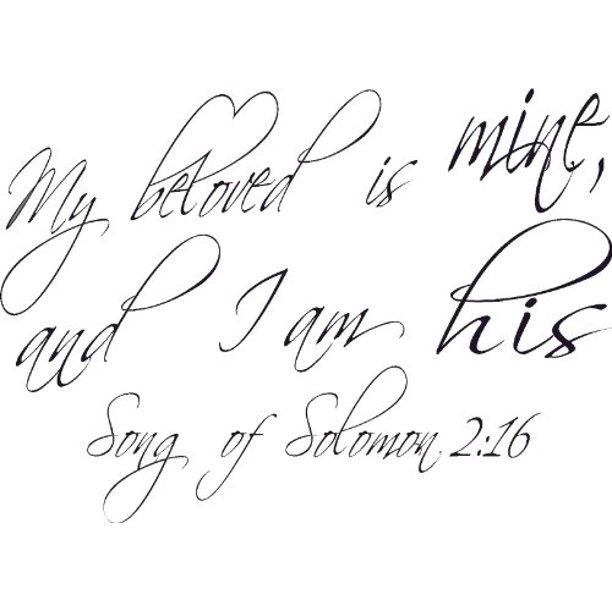 My beloved is mine,
and I am his
Song of Solomon 2:16